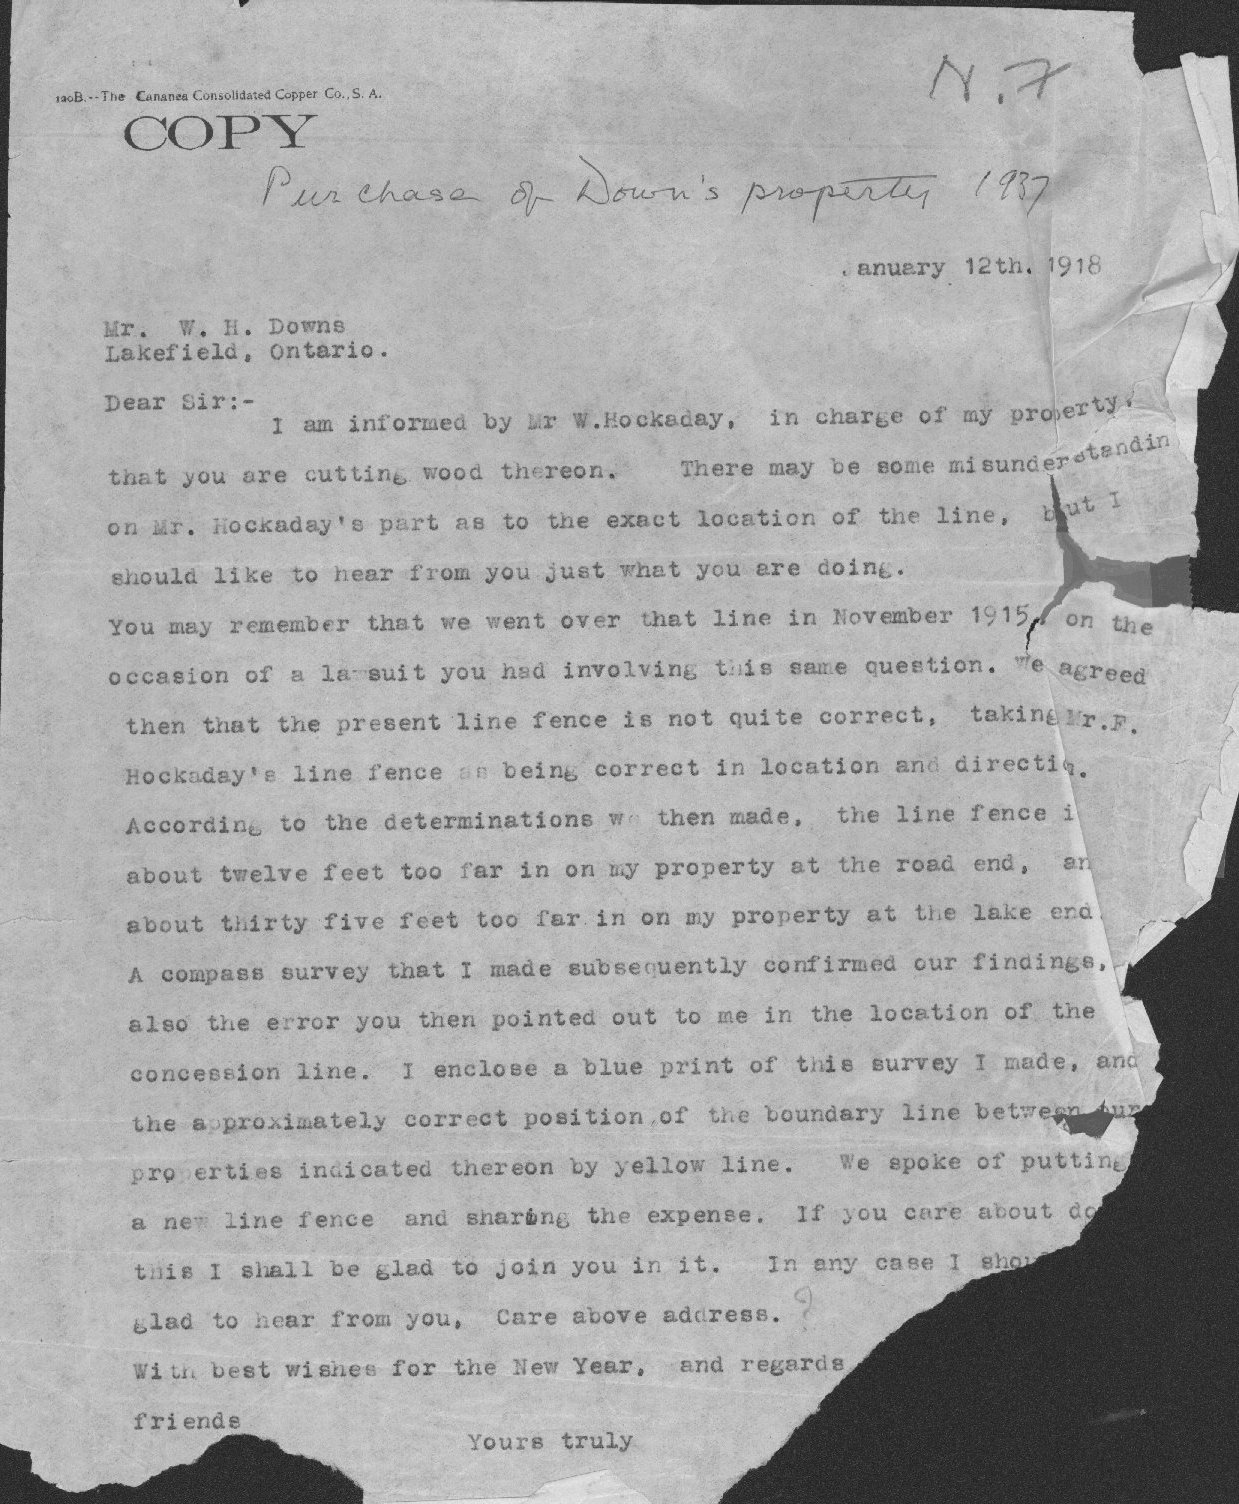 N.F
120B.--The Cananea Consolidated Copper Co., S. A.
COPY
Purchase of Down's property 1937
.anuary 12th. 1918
Mr. W. H. Downs
Lakefield, Ontario.
Dear Sir:-
I am informed by Mr W.Hockaday, in charge of my property,
that you are cutting wood thereon. There may be some misunderstandin
on Mr. Hockaday's part as to the exact location of the line, but I
should like to hear from you just what you are doing.
You may remember that we went over that line in November 1915, on the
occasion of a lawsuit you had involving this same question. We agreed
then that the present line fence is not quite correct, taking Mr.F.
Hockaday's line fence as being correct in location and directi
According to the determinations we then made, the line fence i
about twelve feet too far in on my property at the road end, an
about thirty five feet too far in on my property at the lake end.
A compass survey that I made subsequently confirmed our findings,
also the error you then pointed out to me in the location of the
concession line. I enclose a blue print of this survey I made, and
the approximately correct position,of the boundary line between our
properties indicated thereon by yellow line. We spoke of putting
a new line fence and sharing the expense. If you care about do
this I shall be glad to join you in it. In any case I shou
glad to hear from you, Care above address. ?
With best wishes for the New Year, and regards
friends
Yours truly